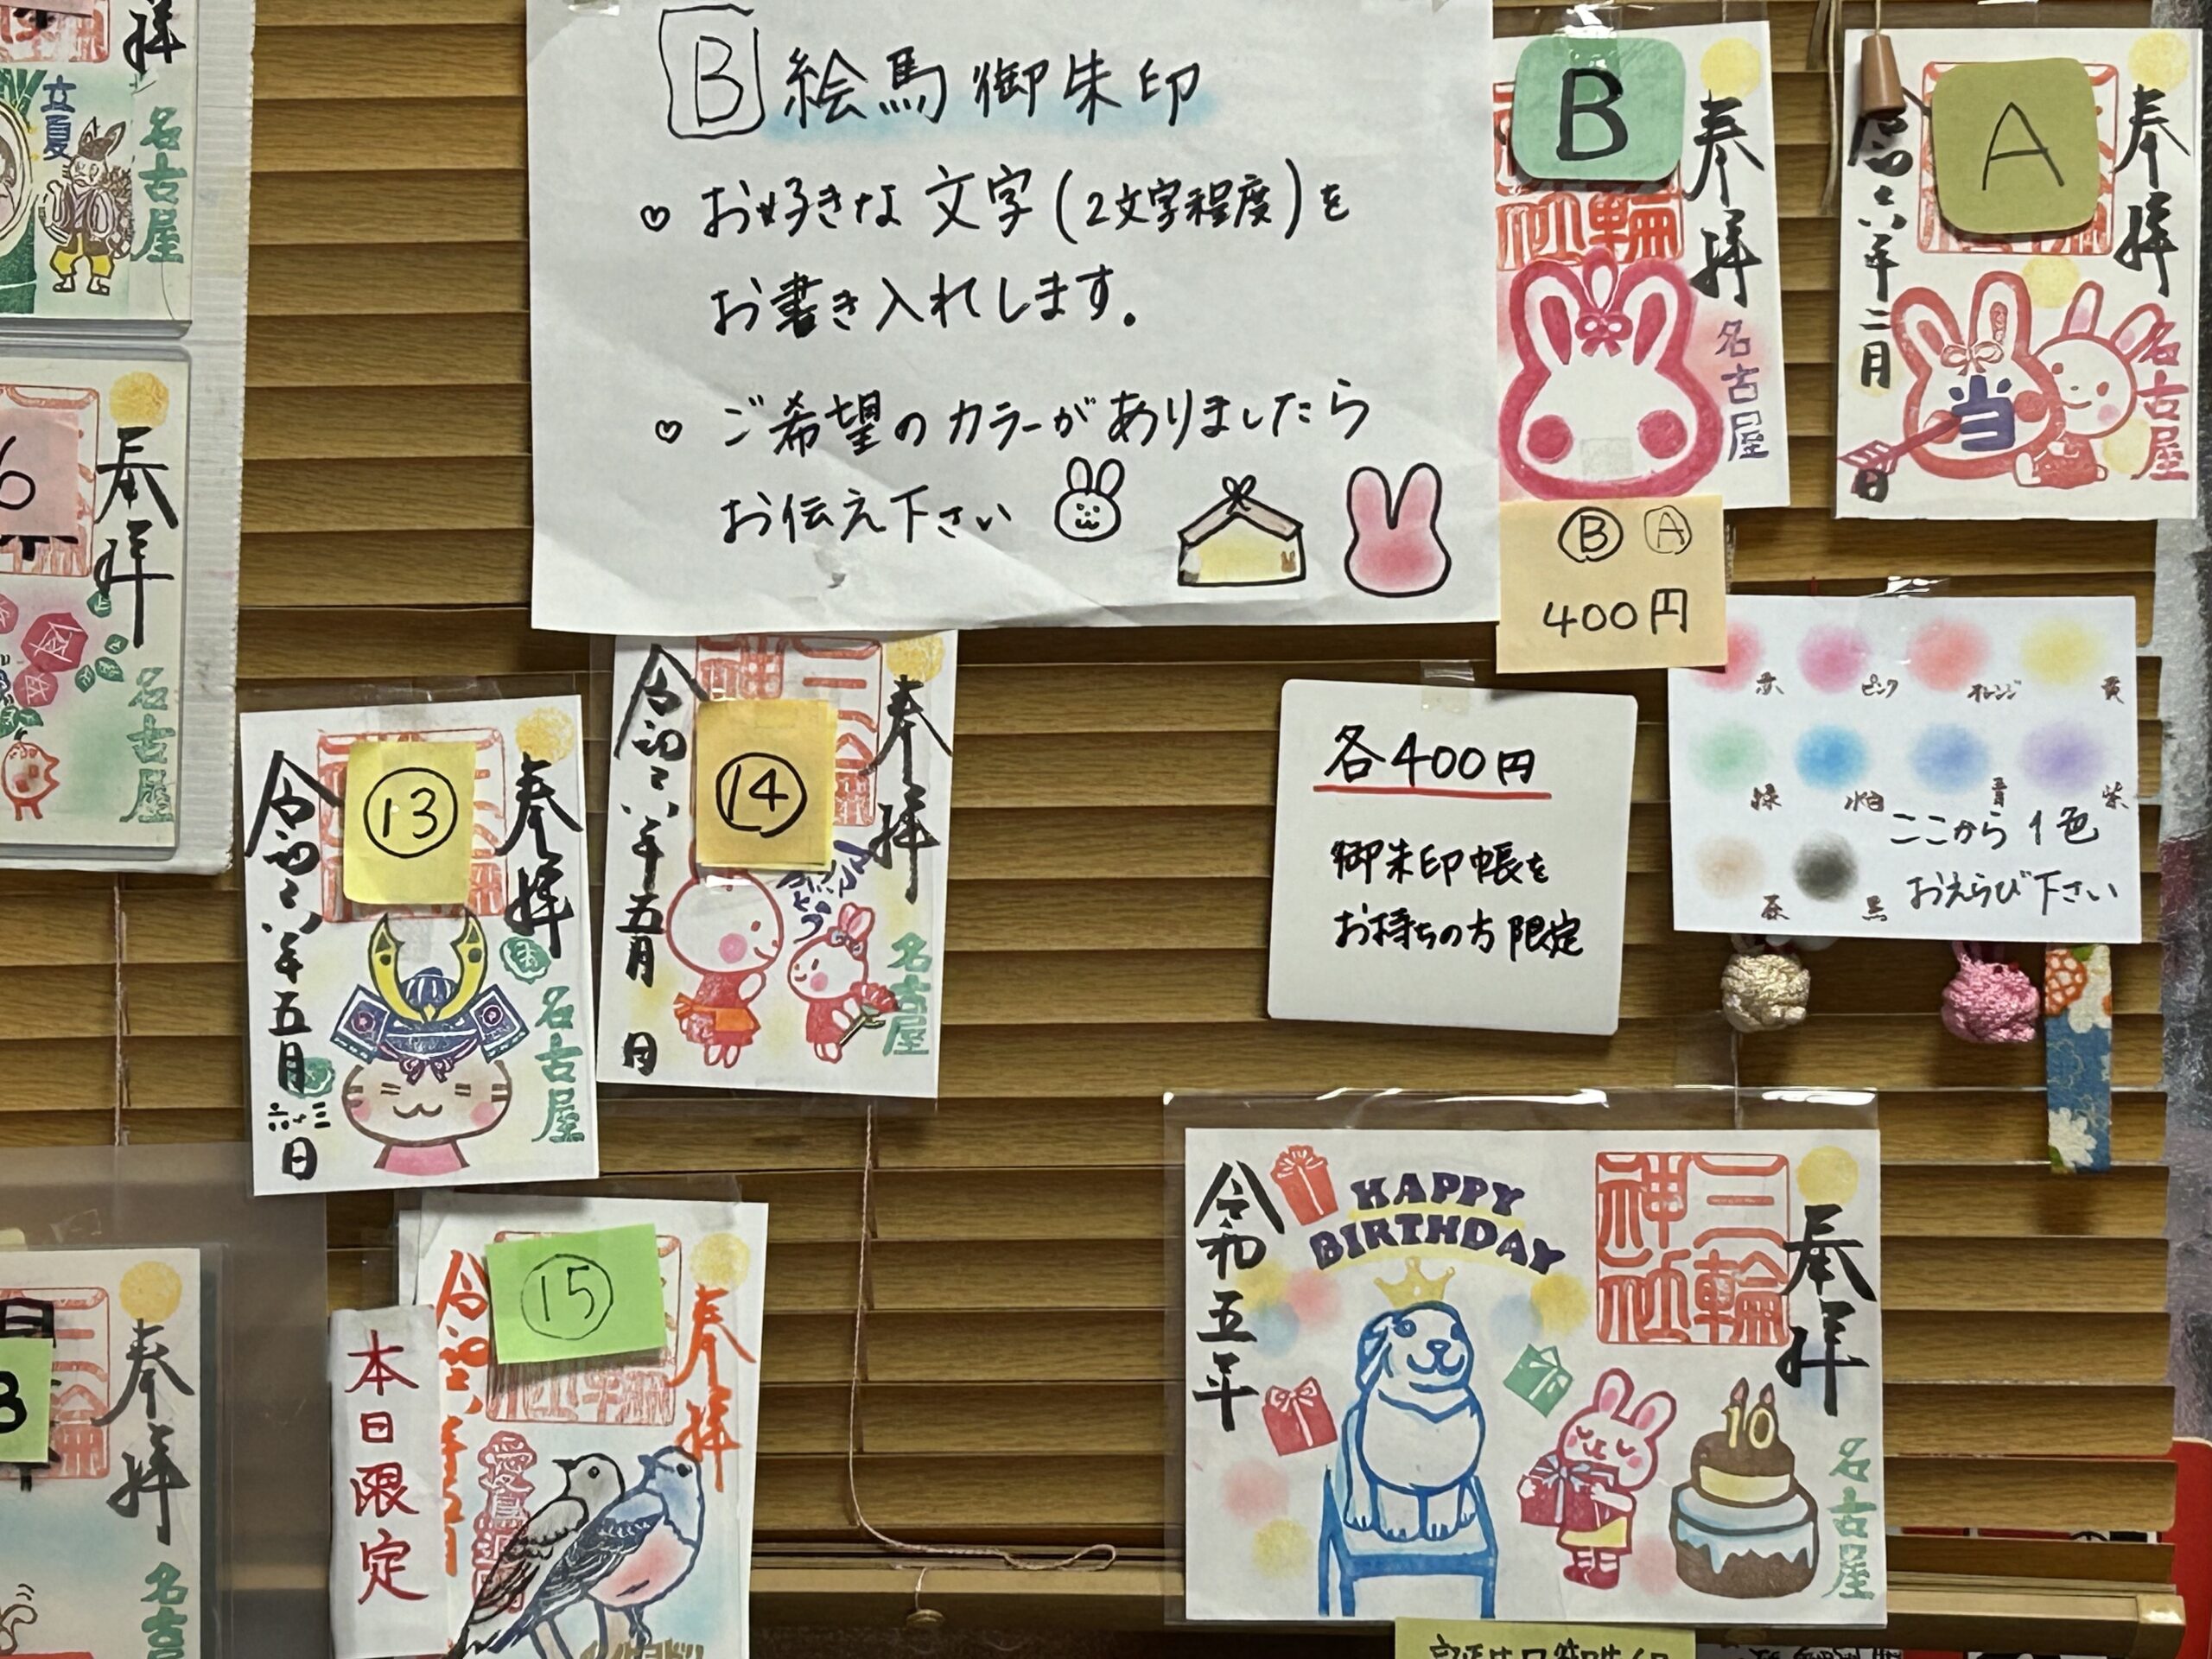 拝
立夏
名古屋
6
奉拝
名古屋
奉拝
B 絵馬御朱印
♡ お好きな文字(2文字程度)を
お書き入れします。
♡ ご希望のカラーがありましたら
お伝え下さい
B
奉拝
名古屋
A
奉拝
令和六年二月
日
当
名古屋
Ⓑ Ⓐ
400円
赤 ピンク オレンジ 黄
緑 水色 青 紫
茶 黒
ここから1色
おえらび下さい
各400円
御朱印帳を
お持ちの方限定
⑬
奉拝
令和六年五月
日
名古屋
⑭
奉拝
令和六年五月
日
名古屋
⑮
奉拝
本日限定
愛鳥週間
令和五年
HAPPY
BIRTHDAY
三輪
神社
奉拝
10
名古屋